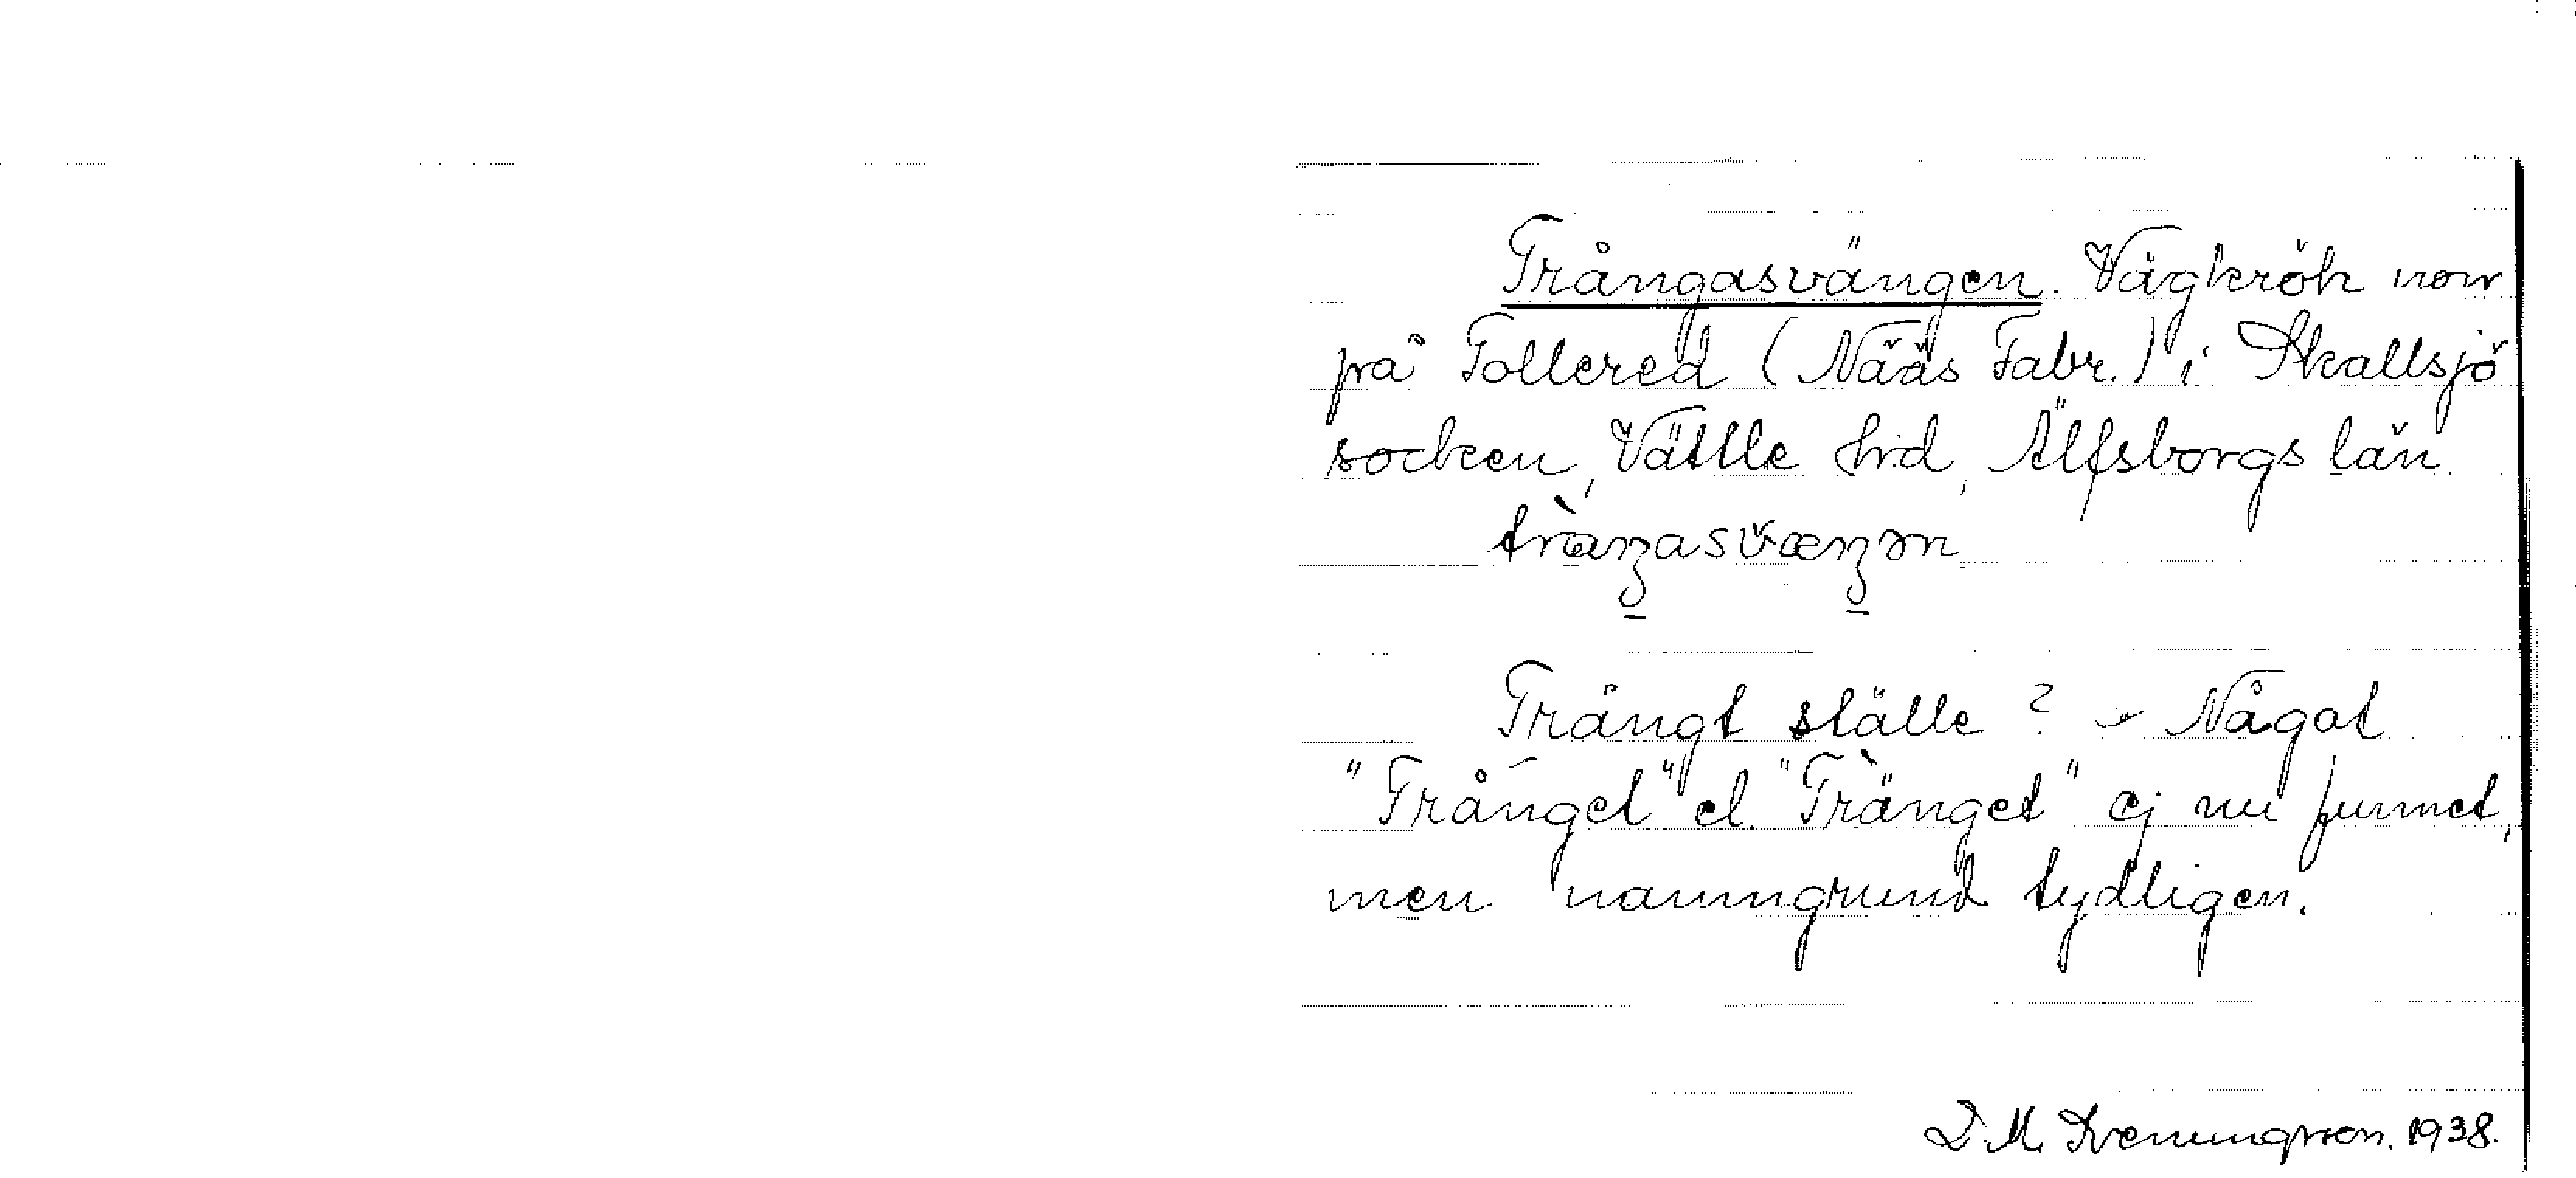 Trångasvängen. Vägkrök norr
på Tollered (Nääs Fabr.) i Skallsjö
socken, Vättle hd, Älfsborgs län.
Trångt ställe? - Något
"Trånget" el. "Tränget" ej nu funnet,
men namngrund tydligen.
D. M. Svenungsson. 1938.